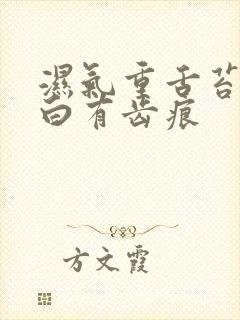 濕氣重舌苔
白有齿痕
方文霞